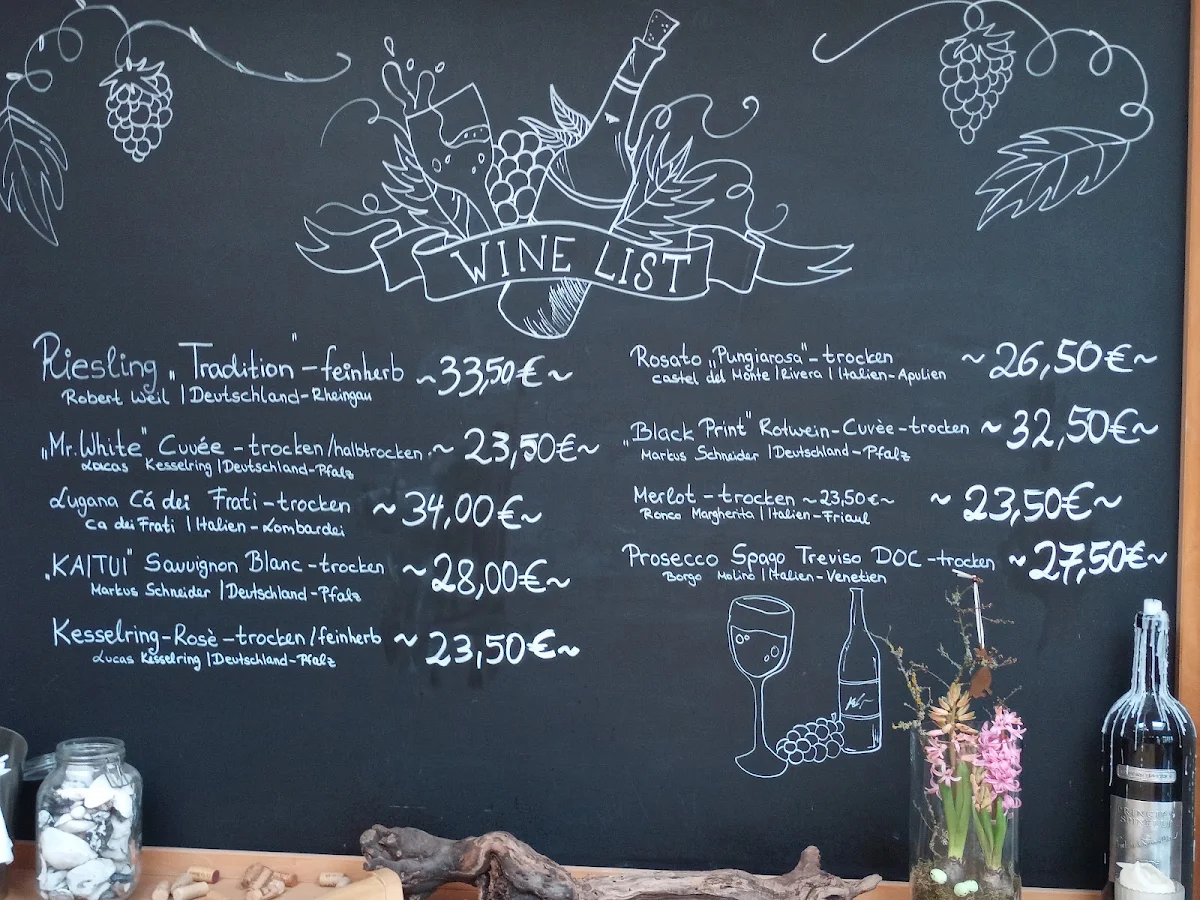 WINE LIST
Riesling „Tradition" - feinherb ~33,50€~
Robert Weil | Deutschland-Rheingau
„Mr. White" Cuvée - trocken/halbtrocken ~ 23,50€~
Lucas Kesselring | Deutschland-Pfalz
Lugana Cá dei Frati - trocken ~34,00€~
Ca dei Frati | Italien - Lombardei
„KAITUI" Sauvignon Blanc - trocken ~28,00€~
Markus Schneider | Deutschland-Pfalz
Kesselring-Rosè - trocken/feinherb ~ 23,50€~
Lucas Kesselring | Deutschland-Pfalz
Rosato „Pungiarosa" - trocken ~26,50€~
Castel del Monte | Rivera | Italien-Apulien
„Black Print" Rotwein-Cuvèe - trocken ~ 32,50€~
Markus Schneider | Deutschland-Pfalz
Merlot - trocken ~23,50€~ ~ 23,50€~
Ronco Margherita | Italien-Friaul
Prosecco Spago Treviso DOC - trocken ~27,50€~
Borgo Molino | Italien-Venetien